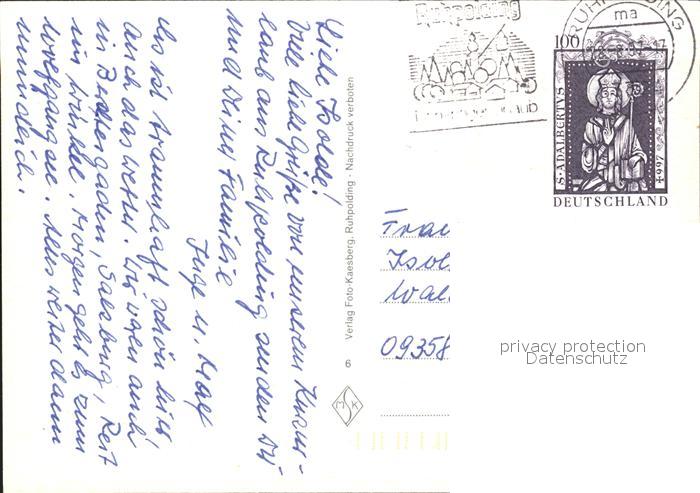 Liebe Isolde!
Viele liebe Grüße von unserem Kurzur-
laub aus Ruhpolding senden Dir
und Deiner Familie
Inge u. Rolf
Es ist traumhaft schön hier,
auch das Wetter. Wir waren auch
in Berchtesgaden, Salzburg, Reit
im Winkel. Morgen geht es zum
Wolfgangsee. Alles weitere dann
mündlich.
Verlag Foto Kaesberg, Ruhpolding - Nachdruck verboten
6
MSK
Ruhpolding
RUHPOLDING
ma
100
S·ADALBERTVS
+997
DEUTSCHLAND
Frau
Isol
Wal
09358
privacy protection
Datenschutz